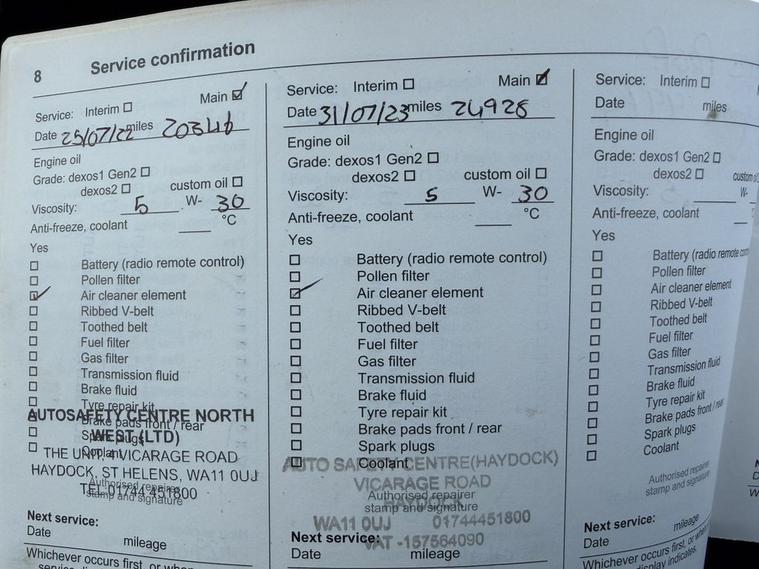 8 Service confirmation
Service: Interim Main
Date 25/07/22 miles 20346
Engine oil
Grade: dexos1 Gen2
dexos2 custom oil
Viscosity: 5 W- 30
Anti-freeze, coolant °C
Yes
Battery (radio remote control)
Pollen filter
Air cleaner element
Ribbed V-belt
Toothed belt
Fuel filter
Gas filter
Transmission fluid
Brake fluid
Tyre repair kit
Brake pads front / rear
Spark plugs
Coolant
AUTOSAFETY CENTRE NORTH
WEST (LTD)
THE UNIT, 4 VICARAGE ROAD
HAYDOCK, ST HELENS, WA11 0UJ
TEL 01744 451800
Authorised repairer
stamp and signature
Next service:
Date mileage
Whichever occurs first, or when
Service: Interim Main
Date 31/07/23 miles 24928
Engine oil
Grade: dexos1 Gen2
dexos2 custom oil
Viscosity: 5 W- 30
Anti-freeze, coolant °C
Yes
Battery (radio remote control)
Pollen filter
Air cleaner element
Ribbed V-belt
Toothed belt
Fuel filter
Gas filter
Transmission fluid
Brake fluid
Tyre repair kit
Brake pads front / rear
Spark plugs
Coolant
AUTO SAFETY CENTRE(HAYDOCK)
VICARAGE ROAD
HAYDOCK
WA11 0UJ 01744451800
VAT -157564090
Authorised repairer
stamp and signature
Next service:
Date mileage
Whichever occurs first, or when
Service: Interim
Date miles
Engine oil
Grade: dexos1 Gen2
dexos2 custom
Viscosity: W-
Anti-freeze, coolant
Yes
Battery (radio remote con
Pollen filter
Air cleaner element
Ribbed V-belt
Toothed belt
Fuel filter
Gas filter
Transmission fluid
Brake fluid
Tyre repair kit
Brake pads front / rear
Spark plugs
Coolant
Authorised repairer
stamp and signature
Next service:
Date mileage
Whichever occurs first, or
display indicates.